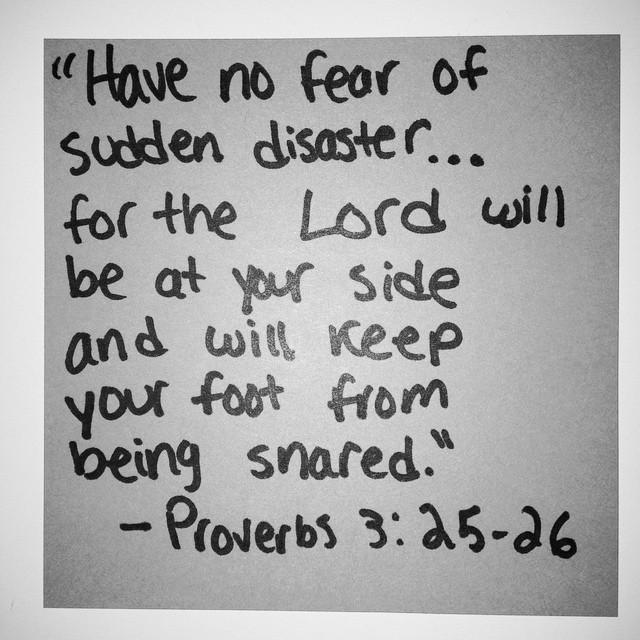 “Have no fear of
sudden disaster...
for the Lord will
be at your side
and will keep
your foot from
being snared."
- Proverbs 3:25-26